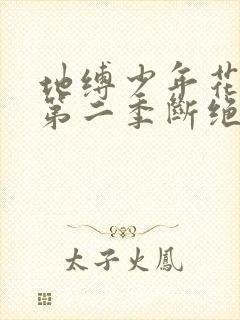 地缚少年花
第二季断绝
太子火鳳